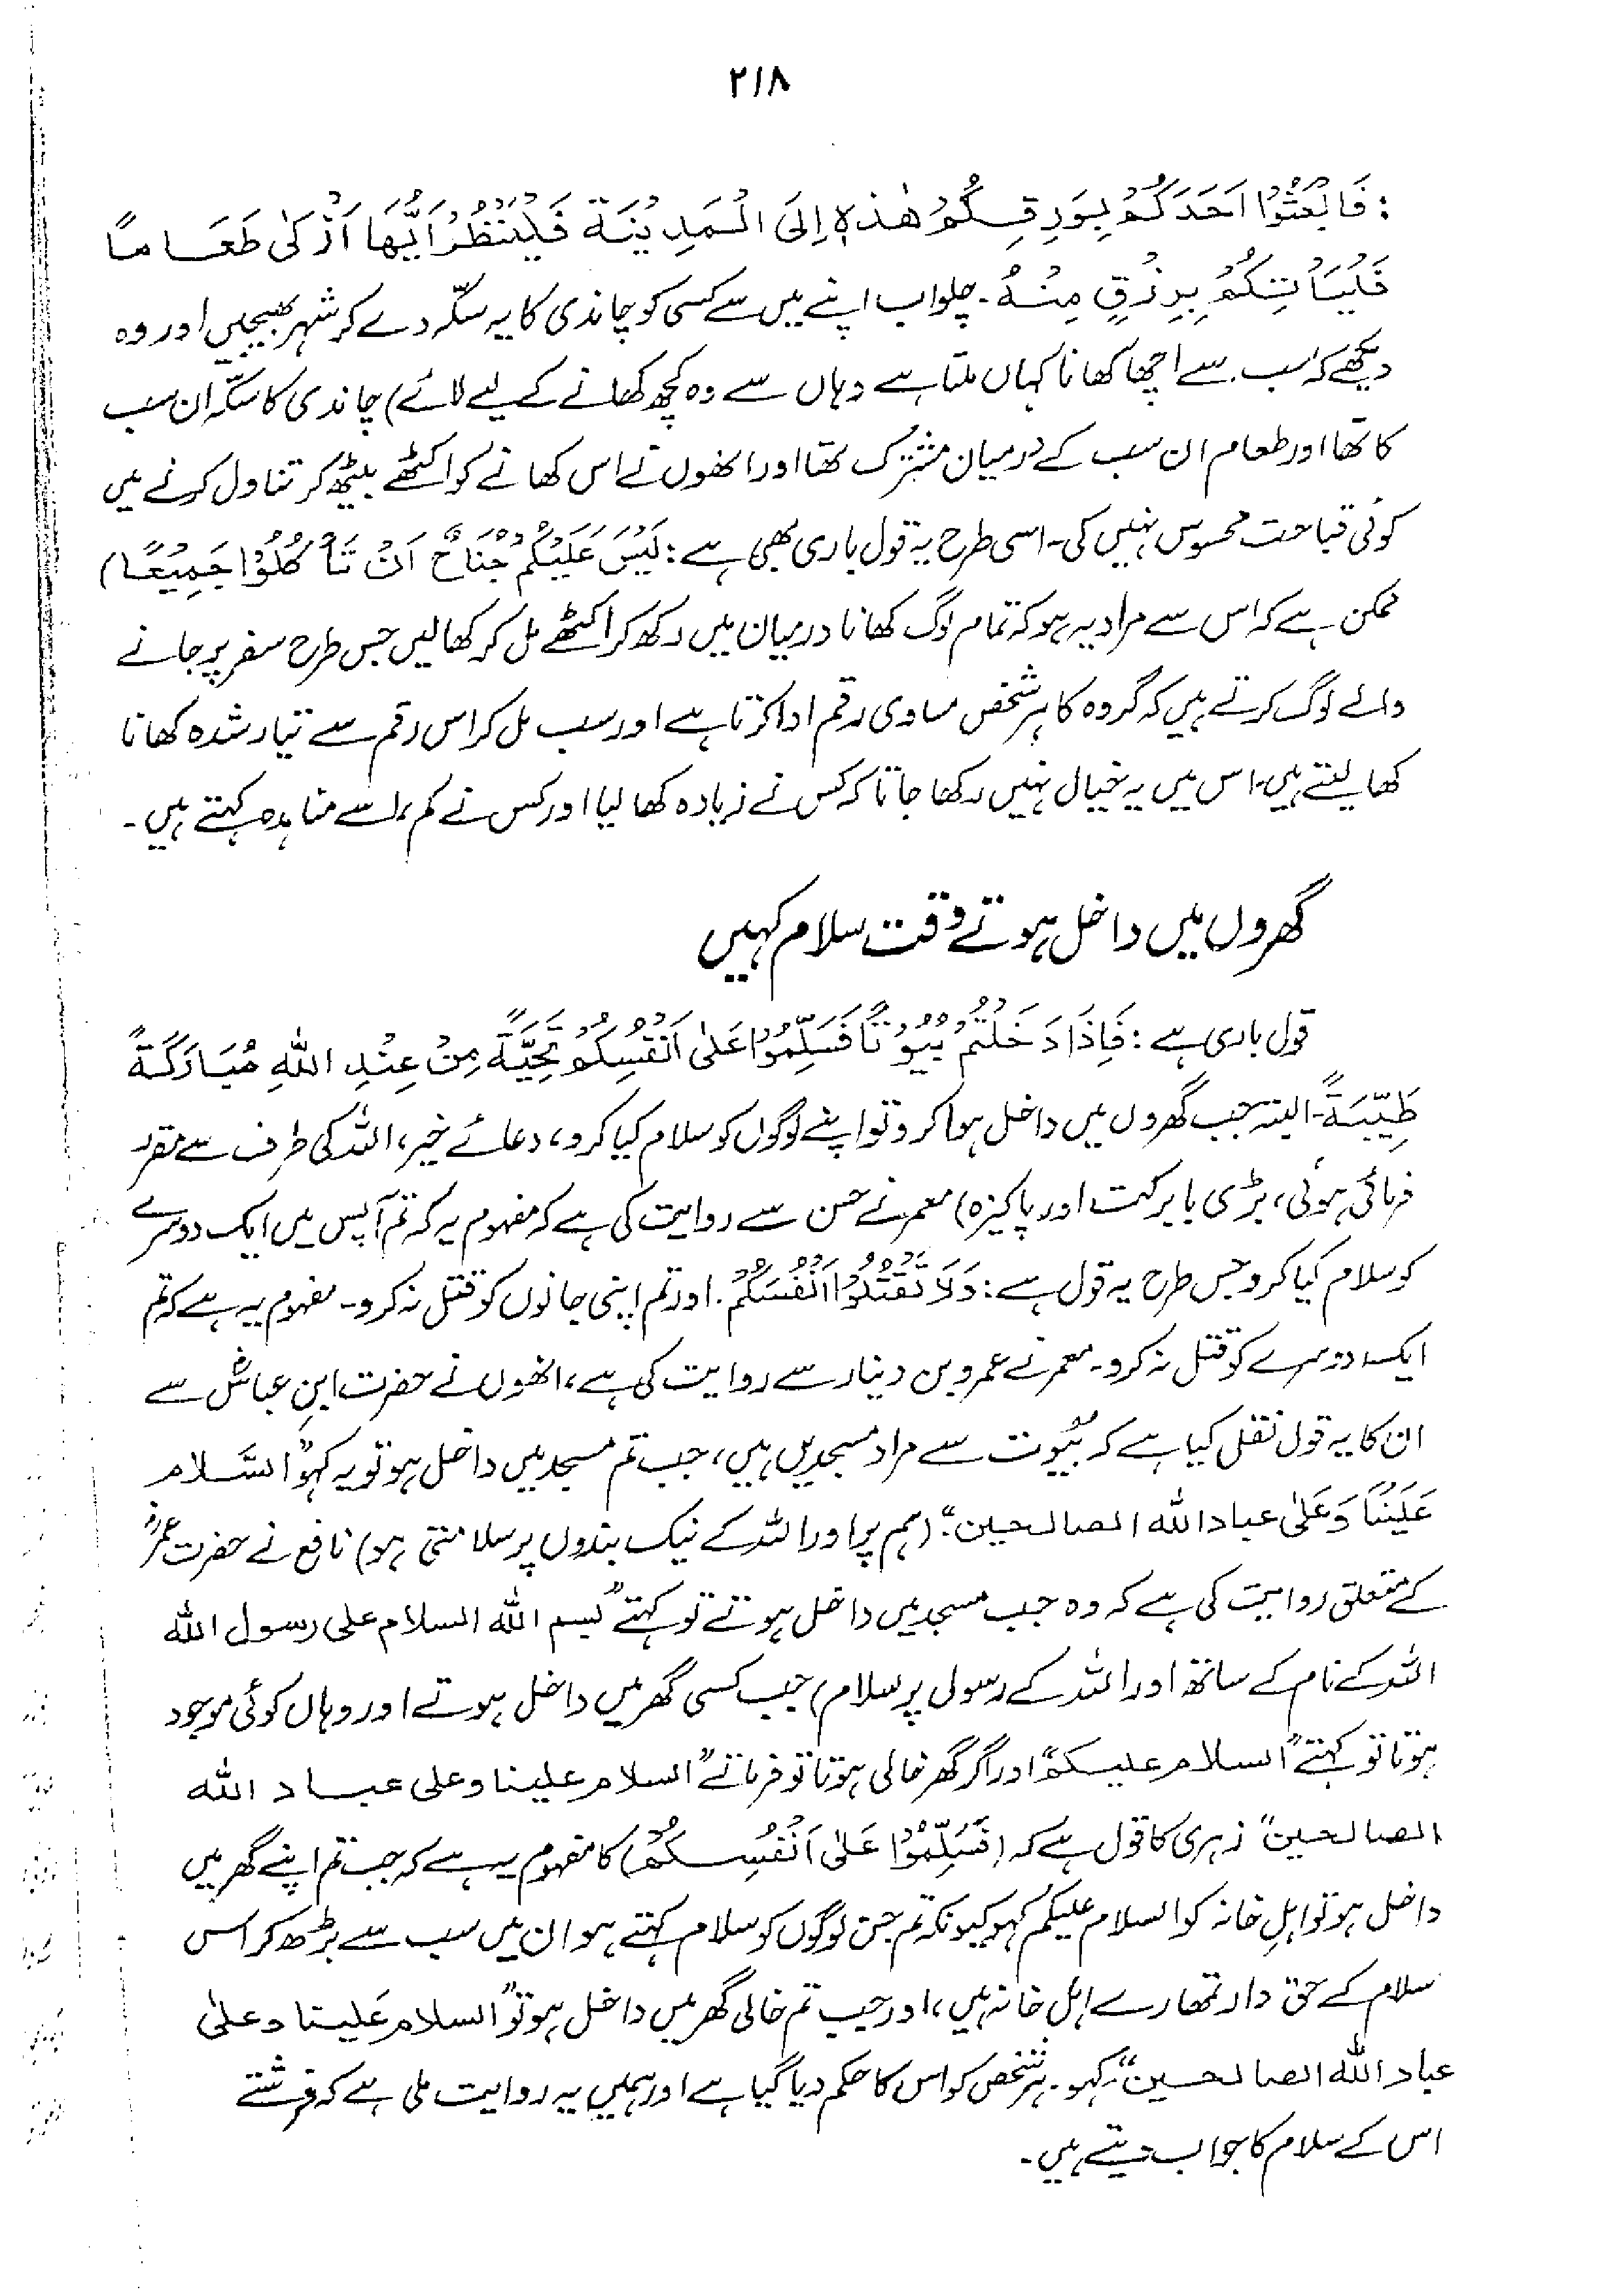 ۲۱۸
: فَابْعَثُوْا اَحَدَكُمْ بِوَرِقِكُمْ هٰذِهٖ اِلَى الْمَدِيْنَةِ فَلْيَنْظُرْ اَيُّهَا اَزْكٰى طَعَامًا
فَلْيَاْتِكُمْ بِرِزْقٍ مِنْهُ۔ چلو اب اپنے میں سے کسی کو چاندی کا یہ سکّہ دے کر شہر بھیجیں اور وہ
دیکھے کہ سب سے اچھا کھانا کہاں ملتا ہے وہاں سے وہ کچھ کھانے کے لیے لائے) چاندی کا سکّہ ان سب
کا تھا اور طعام ان سب کے درمیان مشترک تھا اور انھوں نے اس کھانے کو اکٹھے بیٹھ کر تناول کرنے میں
کوئی قباحت محسوس نہیں کی۔ اسی طرح یہ قول باری بھی ہے: لَيْسَ عَلَيْكُمْ جُنَاحٌ اَنْ تَاْكُلُوْا جَمِيْعًا)
ممکن ہے کہ اس سے مراد یہ ہو کہ تمام لوگ کھانا درمیان میں رکھ کر اکٹھے مل کر کھالیں جس طرح سفر پر جانے
والے لوگ کرتے ہیں کہ گروہ کا ہر شخص مساوی رقم ادا کرتا ہے اور سب مل کر اس رقم سے تیار شدہ کھانا
کھا لیتے ہیں۔ اس میں یہ خیال نہیں رکھا جاتا کہ کس نے زیادہ کھا لیا اور کس نے کم، اسے مناہدہ کہتے ہیں۔
گھروں میں داخل ہوتے وقت سلام کہیں
قول باری ہے: فَاِذَا دَخَلْتُمْ بُيُوْتًا فَسَلِّمُوْا عَلٰى اَنْفُسِكُمْ تَحِيَّةً مِنْ عِنْدِ اللّٰهِ مُبَارَكَةً
طَيِّبَةً۔ البتہ جب گھروں میں داخل ہوا کرو تو اپنے لوگوں کو سلام کیا کرو، دعائے خیر، اللہ کی طرف سے مقرر
فرمائی ہوئی، بڑی بابرکت اور پاکیزہ) معمر نے حسن سے روایت کی ہے کہ مفہوم یہ کہ تم آپس میں ایک دوسرے
کو سلام کیا کرو جس طرح یہ قول ہے: وَلَا تَقْتُلُوْا اَنْفُسَكُمْ۔ اور تم اپنی جانوں کو قتل نہ کرو۔ مفہوم یہ ہے کہ تم
ایک دوسرے کو قتل نہ کرو۔ معمر نے عمرو بن دینار سے روایت کی ہے، انھوں نے حضرت ابن عباسؓ سے
ان کا یہ قول نقل کیا ہے کہ بُیُوت سے مراد مسجدیں ہیں، جب تم مسجد میں داخل ہو تو یہ کہو "السَّلام
عَلَيْنَا وَعَلٰى عباد الله الصالحين"۔ (ہم پر اور اللہ کے نیک بندوں پر سلامتی ہو) نافع نے حضرت عمرؓ
کے متعلق روایت کی ہے کہ وہ جب مسجد میں داخل ہوتے تو کہتے "بسم الله السلام على رسول الله
اللہ کے نام کے ساتھ اور اللہ کے رسول پر سلام) جب کسی گھر میں داخل ہوتے اور وہاں کوئی موجود
ہوتا تو کہتے "السلام عليكم" اور اگر گھر خالی ہوتا تو فرماتے "السلام علينا وعلى عباد الله
الصالحين" زہری کا قول ہے کہ (فَسَلِّمُوْا عَلٰى اَنْفُسِكُمْ) کا مفہوم یہ ہے کہ جب تم اپنے گھر میں
داخل ہو تو اہلِ خانہ کو السلام علیکم کہو کیونکہ تم جن لوگوں کو سلام کہتے ہو ان میں سب سے بڑھ کر اس
سلام کے حق دار تمھارے اہل خانہ ہیں، اور جب تم خالی گھر میں داخل ہو تو "السلام عَلينا وعلىٰ
عباد الله الصالحين" کہو۔ ہر شخص کو اس کا حکم دیا گیا ہے اور ہمیں یہ روایت ملی ہے کہ فرشتے
اس کے سلام کا جواب دیتے ہیں۔